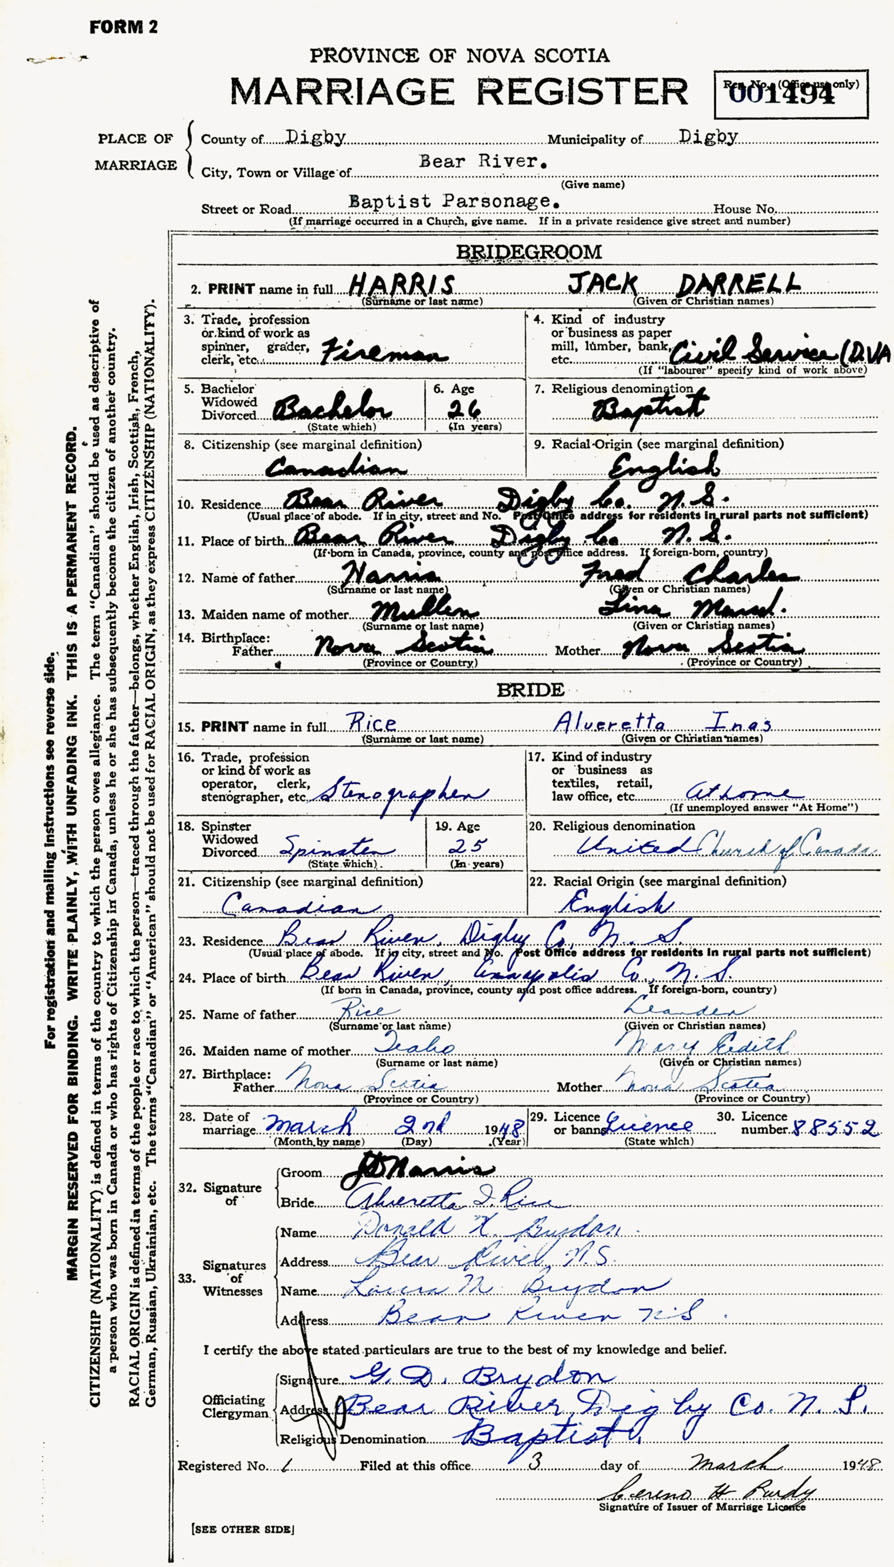 FORM 2
PROVINCE OF NOVA SCOTIA
MARRIAGE REGISTER
Reg. No. (Office use only)
001494
PLACE OF MARRIAGE
County of Digby Municipality of Digby
City, Town or Village of Bear River.
(Give name)
Street or Road Baptist Parsonage. House No.
(If marriage occurred in a Church, give name. If in a private residence give street and number)
BRIDEGROOM
2. PRINT name in full HARRIS JACK DARRELL
(Surname or last name) (Given or Christian names)
3. Trade, profession or kind of work as spinner, grader, clerk, etc. Fireman
4. Kind of industry or business as paper mill, lumber, bank, etc. Civil Service (D.V.A
(If "labourer" specify kind of work above)
5. Bachelor Widowed Divorced Bachelor
(State which)
6. Age 26
(In years)
7. Religious denomination Baptist
8. Citizenship (see marginal definition) Canadian
9. Racial Origin (see marginal definition) English
10. Residence Bear River Digby Co. N.S.
(Usual place of abode. If in city, street and No. Post Office address for residents in rural parts not sufficient)
11. Place of birth Bear River Digby Co. N.S.
(If born in Canada, province, county and post office address. If foreign-born, country)
12. Name of father Harris Fred Charles
(Surname or last name) (Given or Christian names)
13. Maiden name of mother Mullen
(Surname or last name) (Given or Christian names)
14. Birthplace: Father Nova Scotia Mother Nova Scotia
(Province or Country) (Province or Country)
BRIDE
15. PRINT name in full Rice Alveretta Inas
(Surname or last name) (Given or Christian names)
16. Trade, profession or kind of work as operator, clerk, stenographer, etc. Stenographer
17. Kind of industry or business as textiles, retail, law office, etc. At home
(If unemployed answer "At Home")
18. Spinster Widowed Divorced Spinster
(State which)
19. Age 25
(In years)
20. Religious denomination United Church of Canada
21. Citizenship (see marginal definition) Canadian
22. Racial Origin (see marginal definition) English
23. Residence Bear River, Digby Co. N. S.
(Usual place of abode. If in city, street and No. Post Office address for residents in rural parts not sufficient)
24. Place of birth Bear River, Annapolis Co., N. S.
(If born in Canada, province, county and post office address. If foreign-born, country)
25. Name of father Rice Leander
(Surname or last name) (Given or Christian names)
26. Maiden name of mother Mary Edith
(Surname or last name) (Given or Christian names)
27. Birthplace: Father Nova Scotia Mother Nova Scotia
(Province or Country) (Province or Country)
28. Date of marriage March 2nd 1948
(Month by name) (Day) (Year)
29. Licence or banns Licence
(State which)
30. Licence number 88552
32. Signature of
Groom J D Harris
Bride Alveretta I. Rice
33. Signatures of Witnesses
Name Donald H. Brydon
Address Bear River N.S.
Name Laura M Brydon
Address Bear River N S.
I certify the above stated particulars are true to the best of my knowledge and belief.
Officiating Clergyman
Signature G. D. Brydon
Address Bear River, Digby Co. N. S.
Religious Denomination Baptist.
Registered No. 1 Filed at this office 3 day of March 1948
Signature of Issuer of Marriage Licence
[SEE OTHER SIDE]
For registration and mailing instructions see reverse side.
MARGIN RESERVED FOR BINDING. WRITE PLAINLY, WITH UNFADING INK. THIS IS A PERMANENT RECORD.
CITIZENSHIP (NATIONALITY) is defined in terms of the country to which the person owes allegiance. The term "Canadian" should be used as descriptive of
a person who was born in Canada or who has rights of Citizenship in Canada, unless he or she has subsequently become the citizen of another country.
RACIAL ORIGIN is defined in terms of the people or race to which the person—traced through the father—belongs, whether English, Irish, Scottish, French,
German, Russian, Ukrainian, etc. The terms "Canadian" or "American" should not be used for RACIAL ORIGIN, as they express CITIZENSHIP (NATIONALITY).